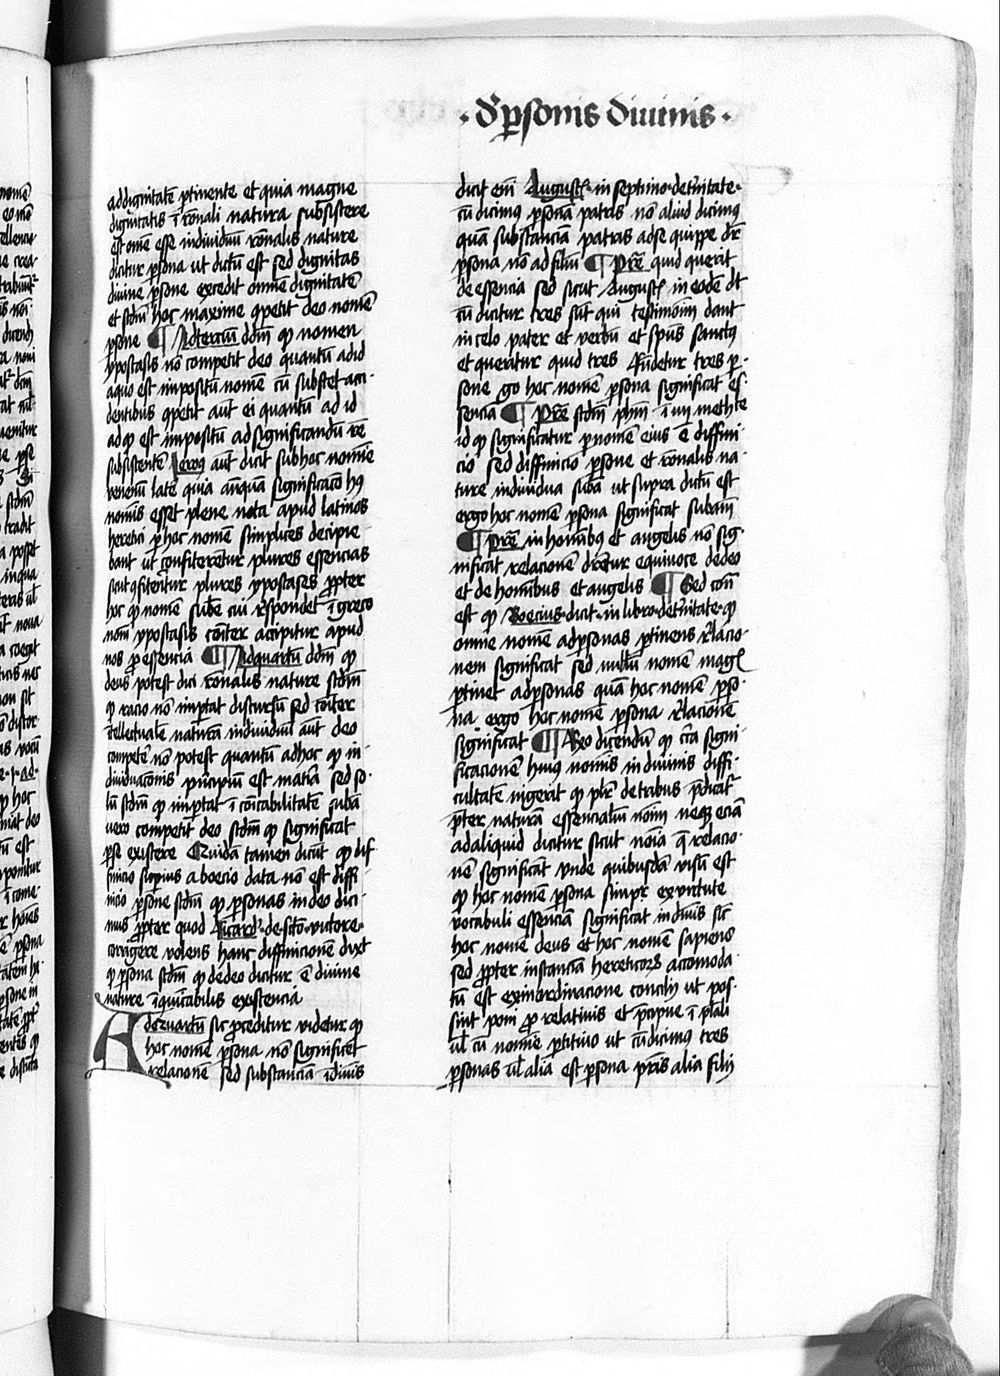 · d' p̱sonis diuinis ·
addignitatē p̱tinente et quia magne
dignitatis ī rōnali natura subsistere
est omē esse indiuiduū rōnalis nature
dicitur p̱sona ut dictū est sed dignitas
diuine p̱sone excedit omnē dignitatē
et scdm̄ hoc maxime ꝯpetit deo nomen
p̱sone ¶ Adterciū dd̄m ꝙ nomen
ypostasis nō competit deo quantū adid
aquo est impositū nomē cū substet acci-
dentibus ꝯpetit aūt ei quantū ad id
adꝙ est impositū adsignificandū rē
subsistentē Ieroꝰ aūt dicit sub hoc nomīe
venenū latē quia anꝗuam significacō hꝰ
nomīs esset plene nota apud latinos
heretici p̱ hoc nomē simplices decipie
bant ut ꝯfiterentur plures essencias
sicut ꝯfitentur plures ypostases ꝓpter
hoc ꝙ nomē sube cui r̄spondet ī greco
nom̄ ypostasis cōiter accipitur apud
nos ꝓ essencia ¶ Adquartū dd̄m ꝙ
deus potest dici rōnalis nature scdm̄
ꝙ racio nō īmportat discursū sed cōiter
ītellectualē naturā indiuiduū aūt deo
competē nō potest quantū adhoc ꝙ in-
diuiduacionis principiū est materia sed so-
lū scdm̄ ꝙ īmportat ī cōicabilitatē suba
vero competit deo scdm̄ ꝙ significat
p̱se existere Quidā tamen dicūt ꝙ dif
finicio suꝑius a boecio data nō est diffi
nicio p̱sone scdm̄ ꝙ p̱sonas in deo dici-
mus ꝓpter quod Ricard' de scō victore
corrigere volens hanc diffinicionē dixit
ꝙ p̱sona scdm̄ ꝙ dedeo dicitur ē diuine
nature īcōicabilis existencia
Adquartū sic proceditur videtur ꝙ
hoc nomē p̱sona nō significet
relacionē sed substanciā ī diuīs
dicit enī August' in septimo de trinitate
cū dicimꝰ p̱sonā patris nō aliud dicimꝰ
quā substanciā patris adse quippe dr̄
p̱sona nō ad filiū ¶ Pret' quid querit
de essencia sed sicut August' in eodē dt̄
cū dicitur tres sūt qui testimoniū dant
in celo pater et verbū et sp̄us sanctꝰ
et queritur quid tres Rūdetur tres p̱-
sone ꝫo hoc nomē p̱sona significat es-
senciā ¶ Pret' scdm̄ ph̄m ī iiij meth̄e
id ꝙ significatur p̱ nomē eius ē diffini-
cio sed diffinicio p̱sone ē rōnalis na-
ture indiuidua suba ut supra dictū est
ergo hoc nomē p̱sona significat subam
¶ Pret' in hoībꝰ et angelis nō sig-
nificat relacionē diceretur equiuoce dedeo
et de homībus et angelis ¶ Sed con̄
est ꝙ Boecius dicit in libro de trinitate ꝙ
omne nomē adp̱sonas p̱tinens r̄lacio-
nem significat sed nullū nomē magꝭ
p̱tinet adp̱sonas quā hoc nomē p̱so-
na ergo hoc nomē p̱sona r̄lacionē
significat ¶ Rn̄deo dicendū ꝙ circa signi-
ficacionē huiꝰ nomīs in diuinis diffi-
cultatē ingerit ꝙ plr̄ de tribus p̄dicat'
p̄ter naturā essencialiū noīm neqꝫ eciā
adaliquid dicitur sicut noīa q̄ relacio-
nē significāt Vnde quibusdā visū est
ꝙ hoc nomē p̱sona simpr̄ ex virtute
vocabuli essenciā significat in diuīs sic̄
hoc nomē deus et hoc nomē sapiens
sed ꝓpter instanciā hereticoꝝ accomoda-
tū est ex inordinacione concilij ut pos-
sint poni ꝓ relatiuis et p̄cipue ī plāli
ul̄ cū nomīe p̱titiuo ut cū dicimus tres
p̱sonas ul̄ alia est p̱sona pr̄is alia filij